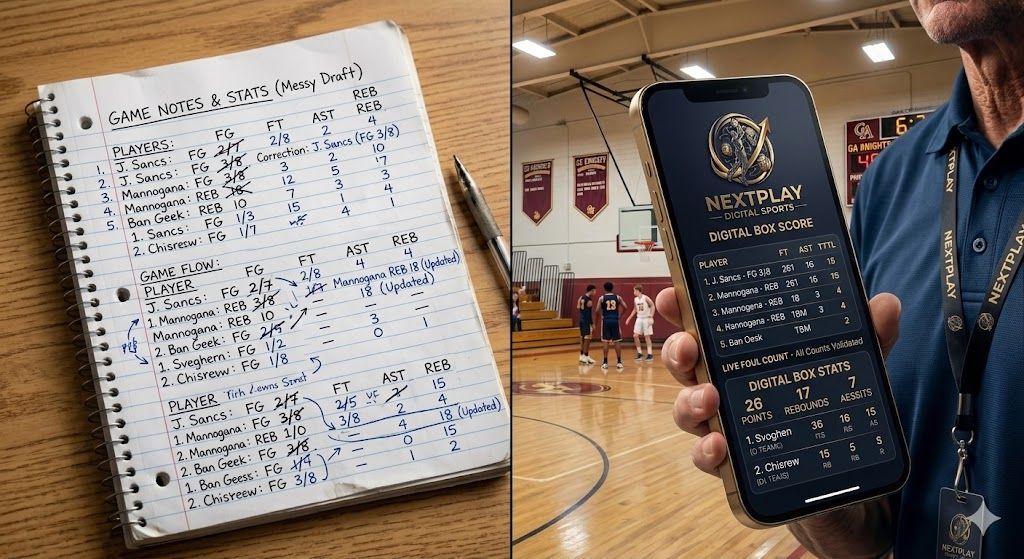 GAME NOTES & STATS (Messy Draft)
REB
PLAYERS: FG FT AST REB
1. J. Sancs: FG 2/7 2/8 2 4
2. J. Sancs: FG 3/8 Correction: J. Sancs (FG 3/8)
3. Mannogana: FG 3/8 3 2 10
4. Mannogana: REB 18 12 5 17
5. Ban Geek: REB 10 7 1 3
1. Sancs: FG 1/3 15 3
2. Chisrew: FG 1/7 4 1
GAME FLOW:
PLAYER FG AST REB
J. Sancs: FG 2/7 2/8 4 4
1. Mannogana: REB 3/8 Mannogana REB 18 (Updated)
Mannogana: REB 10 — 18 (Updated)
2. Ban Geek: FG 2/5 — — —
1. Sveghern: FG 1/2 — 3 —
2. Chisrew: FG 1/8 — 0 1
PLAYER FT AST REB
J. Sancs: FG 2/7 2/5 15
1. Mannogana: FG 3/8 3/8 2 4
2. Mannogana: REB 1/0 — 4 18 (Updated)
2. Ban Geek: FG 3/8 — 0 15
1. Ban Geess: FG 4/4 — 1 2
2. Chisreew: FG 3/8
NEXTPLAY
DIGITAL SPORTS
DIGITAL BOX SCORE
PLAYER FT AST TTTL
1. J. Sancs - FG 3/8 261 16 15
2. Mannogena - REB 261 16 15
3. Mannogena - REB 18 3 4
4. Hannogena - REB TBM 3 4
5. Ban Oesk TBM 2
LIVE FOUL COUNT - All Counts Volidated
DIGITAL BOX STATS
26 17 7
POINTS REBOUNDS AESSITS
1. Svoghen 36 16 15
(O TEAMC) ITS RB AS
2. Chisrew 15 5 S
(DI TEAIS) RB RB R
GA
GA KNIGHTS
NEXTPLAY
NEXTPLAY
NEXTPLAY